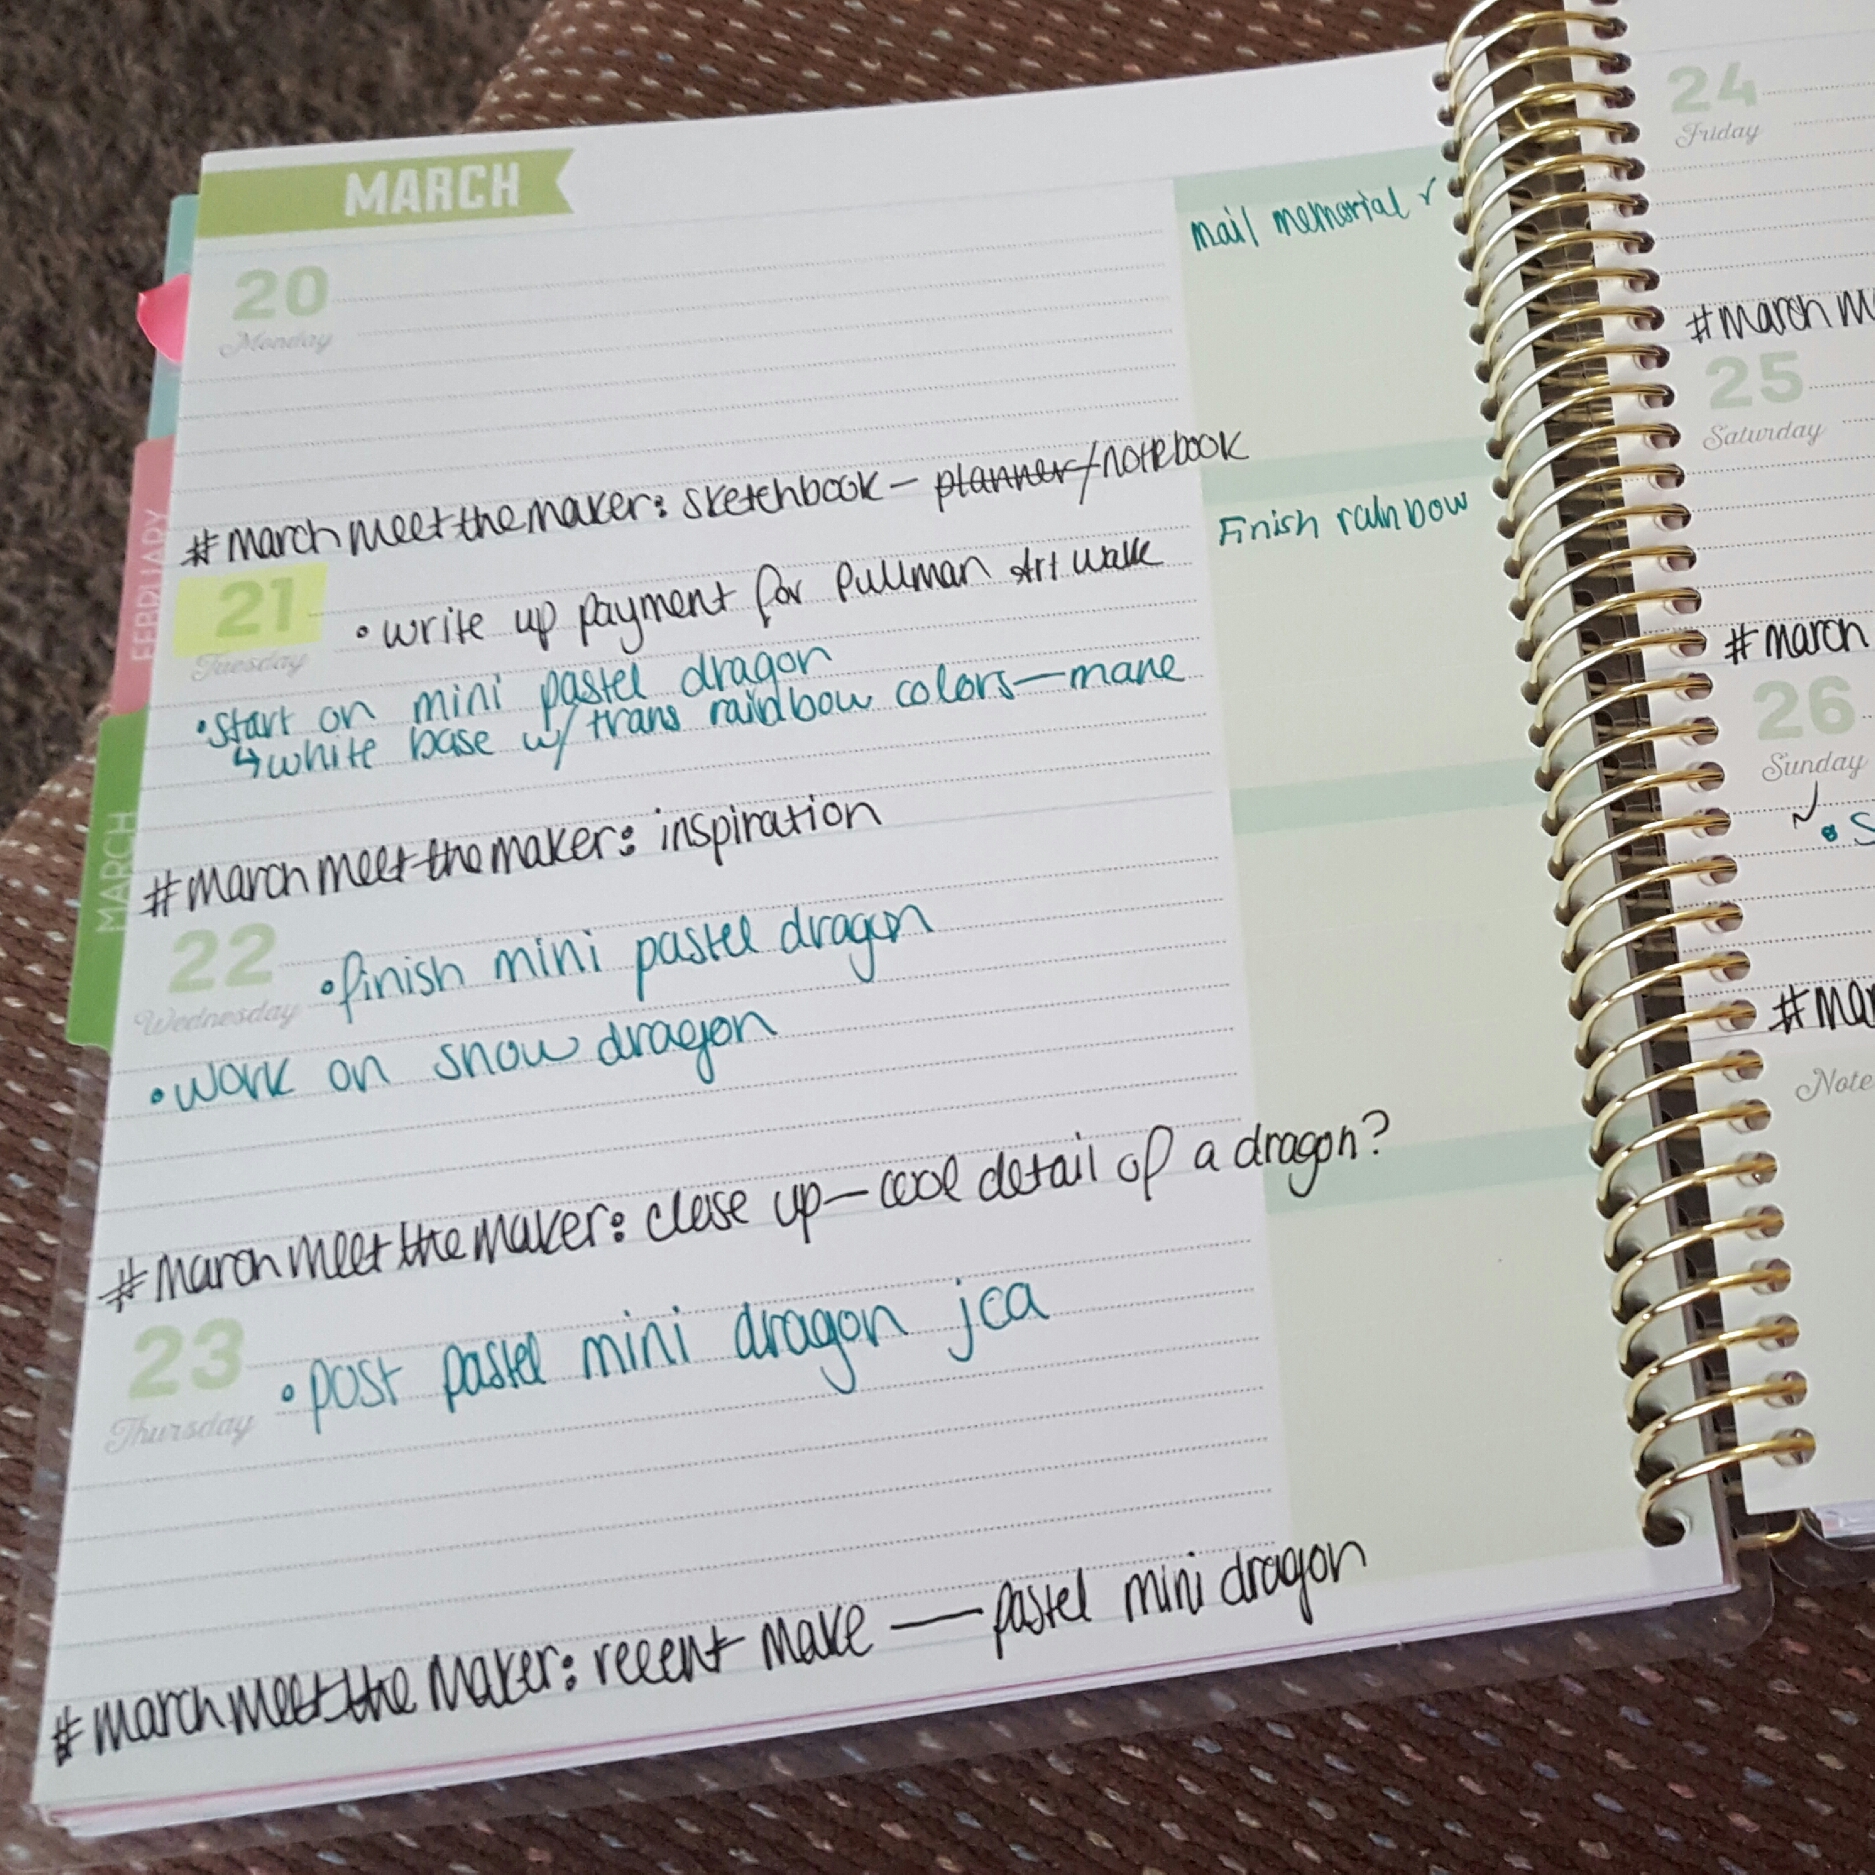 MARCH
mail memorial ✓
20
Monday
#marchmeetthemaker: sketchbook – planner/notebook
Finish rainbow
21
Tuesday
• write up payment for Pullman Art Walk
• start on mini pastel dragon
↳ white base w/ trans rainbow colors—mane
#marchmeetthemaker: inspiration
22
Wednesday
• finish mini pastel dragon
• work on snow dragon
#marchmeetthemaker: close up—cool detail of a dragon?
23
Thursday
• post pastel mini dragon jca
#marchmeetthemaker: recent make — pastel mini dragon
FEBRUARY
MARCH
24
Friday
#march m
25
Saturday
#march
26
Sunday
• S
#mar
Note